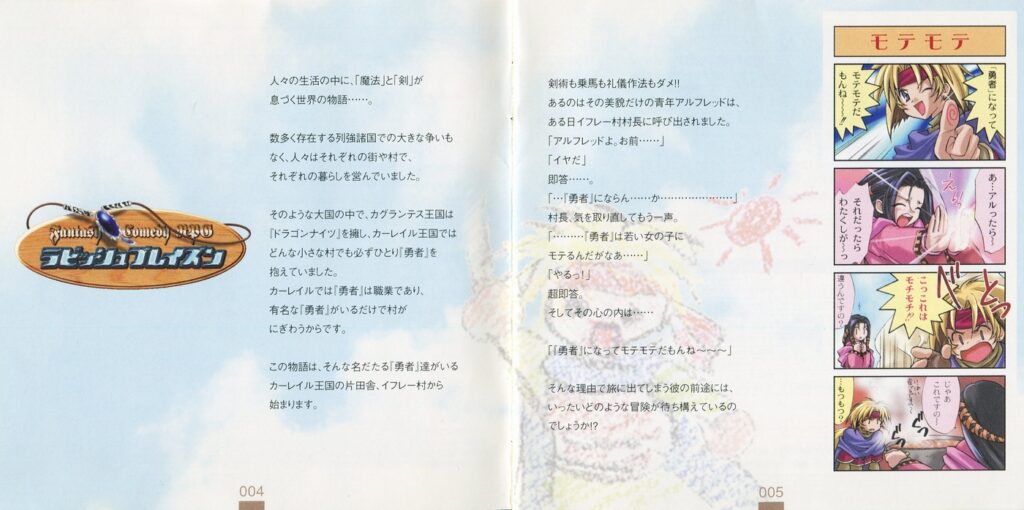 Fantasy Comedy RPG
ラビッシュブレイズン
人々の生活の中に、「魔法」と「剣」が
息づく世界の物語……。
数多く存在する列強諸国での大きな争いも
なく、人々はそれぞれの街や村で、
それぞれの暮らしを営んでいました。
そのような大国の中で、カグランテス王国は
『ドラゴンナイツ』を擁し、カーレイル王国では
どんな小さな村でも必ずひとり『勇者』を
抱えていました。
カーレイルでは『勇者』は職業であり、
有名な『勇者』がいるだけで村が
にぎわうからです。
この物語は、そんな名だたる『勇者』達がいる
カーレイル王国の片田舎、イフレー村から
始まります。
004
剣術も乗馬も礼儀作法もダメ!!
あるのはその美貌だけの青年アルフレッドは、
ある日イフレー村村長に呼び出されました。
「アルフレッドよ。お前……」
「イヤだ」
即答……。
「…『勇者』にならん……か……………………」
村長、気を取り直してもう一声。
「………『勇者』は若い女の子に
モテるんだがなあ……」
「やるっ!」
超即答。
そしてその心の内は……
「『勇者』になってモテモテだもんね〜〜〜」
そんな理由で旅に出てしまう彼の前途には、
いったいどのような冒険が待ち構えているの
でしょうか!?
005
モテモテ
「勇者」になって
モテモテだ
もんね〜〜〜!!
あ…アルったら〜
それだったら
わたくしが〜っ
えい
こっこれは
モチモチ!!
どっ
違うんですの?
じゃあ
これですの…
…もつもつ?